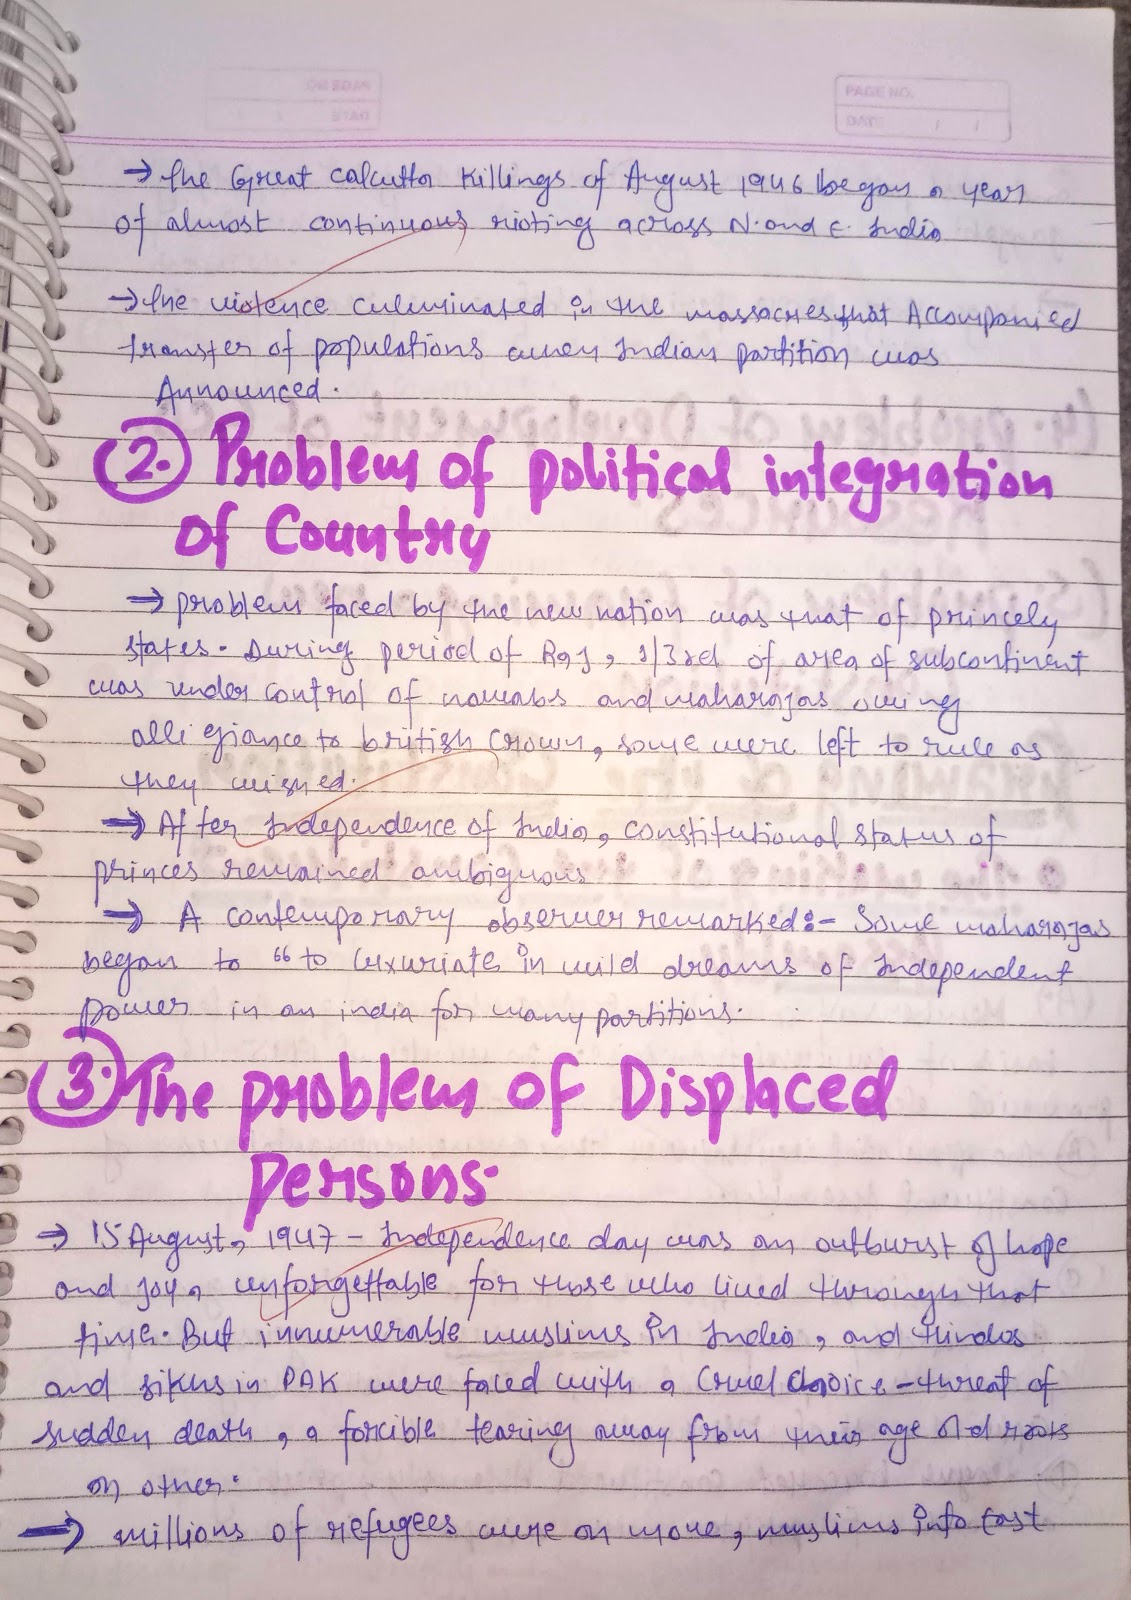 PAGE NO.
DATE / /
→ the Great calcutta Killings of August 1946 began a year
of almost continuous rioting across N. and E. India
→ the violence culminated in the massacres that Accompanied
transfer of populations when Indian partition was
Announced.
2. Problem of political integration
of Country
→ problem faced by the new nation was that of princely
states. During period of Raj, 1/3rd of area of subcontinent
was under control of nawabs and maharajas owing
allegiance to british crown, some were left to rule as
they wished.
→ After Independence of India, constitutional status of
princes remained ambiguous
→ A contemporary observer remarked:- Some maharajas
began to "to luxuriate in wild dreams of Independent
power in an india for many partitions.
3. The problem of Displaced
Persons.
→ 15 August, 1947 - Independence day was an outburst of hope
and joy, unforgettable for those who lived through that
time. But innumerable muslims in India, and Hindus
and sikhs in PAK were faced with a Cruel choice - threat of
sudden death, a forcible tearing away from their age old roots
on other.
→ millions of refugees were on move, muslims into East